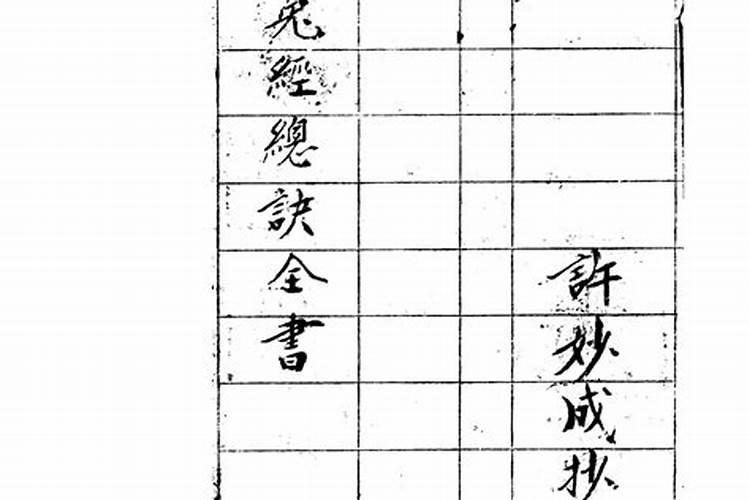 許妙成抄
兔經總訣全書